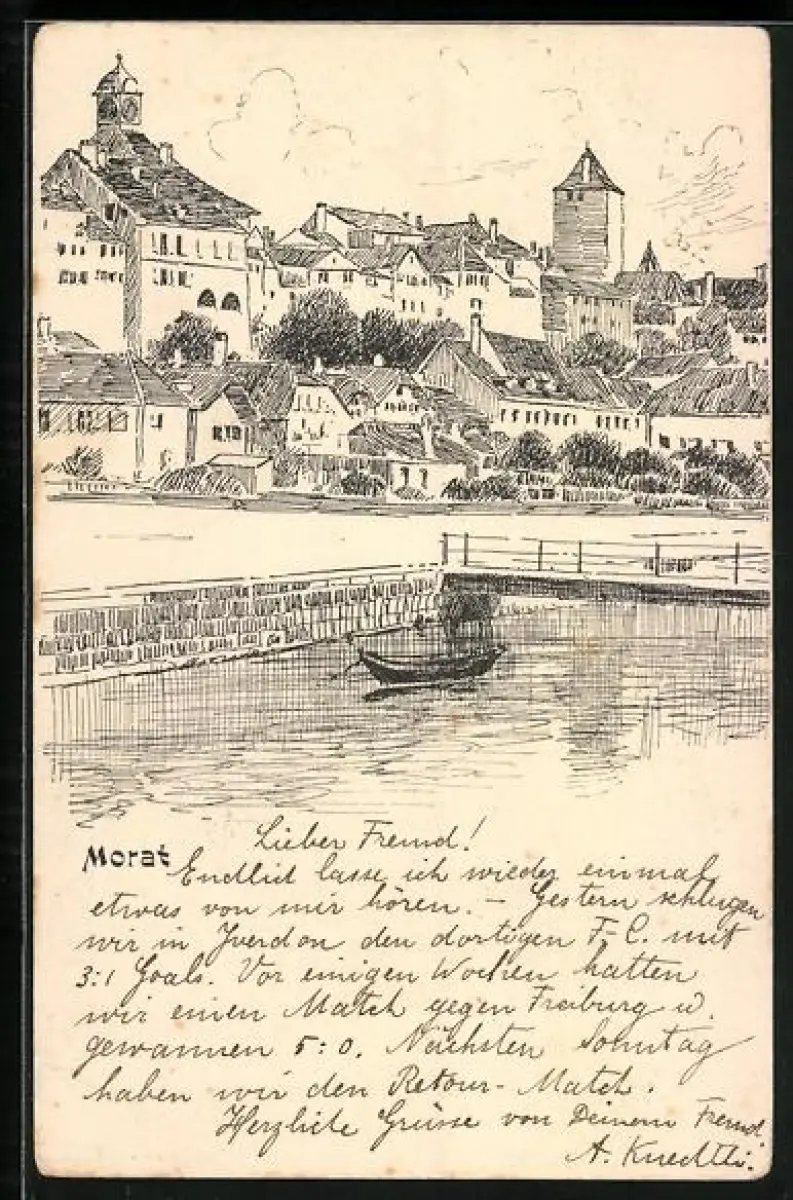 Lieber Freund!
Morat
Endlich lasse ich wieder einmal
etwas von mir hören. – Gestern schlugen
wir in Yverdon den dortigen F.-C. mit
3:1 Goals. Vor einigen Wochen hatten
wir einen Match gegen Freiburg u.
gewannen 5:0. Nächsten Sonntag
haben wir den Retour-Match.
Herzliche Grüsse von Deinem Freund
A.